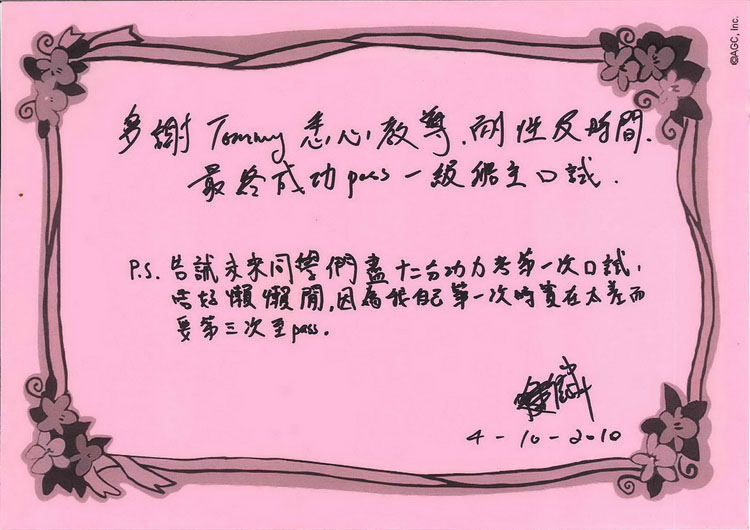 ©AGC, Inc.
多謝 Tommy 悉心教導、耐性及時間.
最終成功 pass 一級船主口試.
P.S. 告誡未來同學們盡十二分功力考第一次口試,
唔好懶懶閒,因為我自己第一次時實在太差而
要第三次至 pass.
4-10-2010